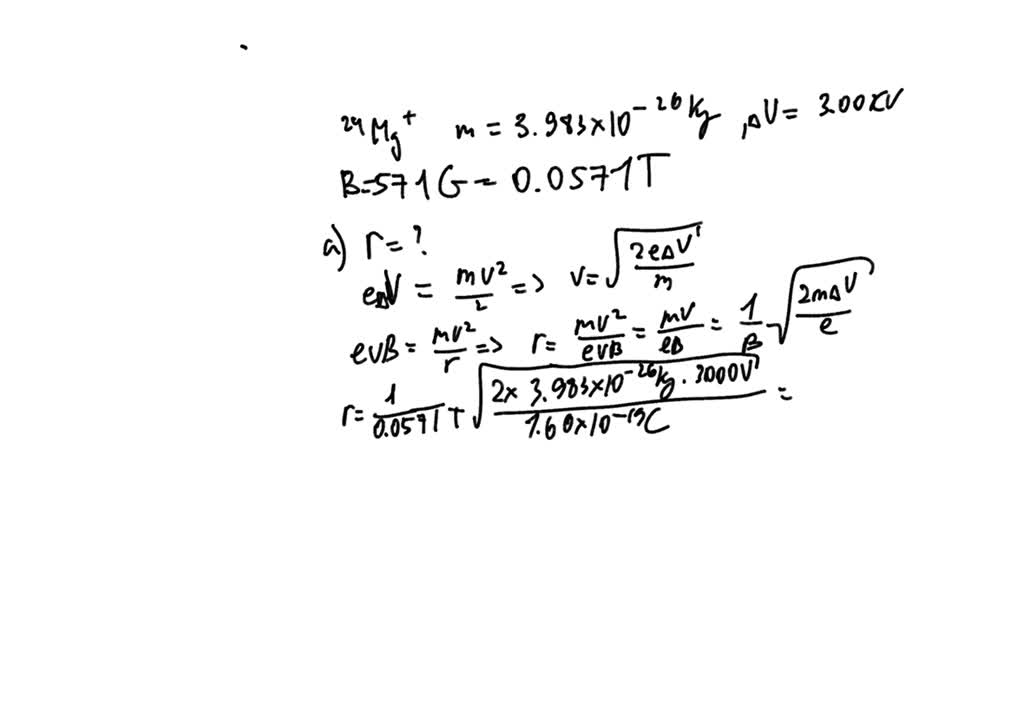 ²⁴Mg⁺ m = 3.983×10⁻²⁶ kg, ΔV = 3.00 KV
B=571G = 0.0571T
a) r = ?
eΔV = mv²/2 => v = √(2eΔV/m)
evB = mv²/r => r = mv²/evB = mv/eB = 1/B √(2mΔV/e)
r = 1/0.0571T √(2× 3.983×10⁻²⁶kg · 3000V/1.60×10⁻¹⁹C) =